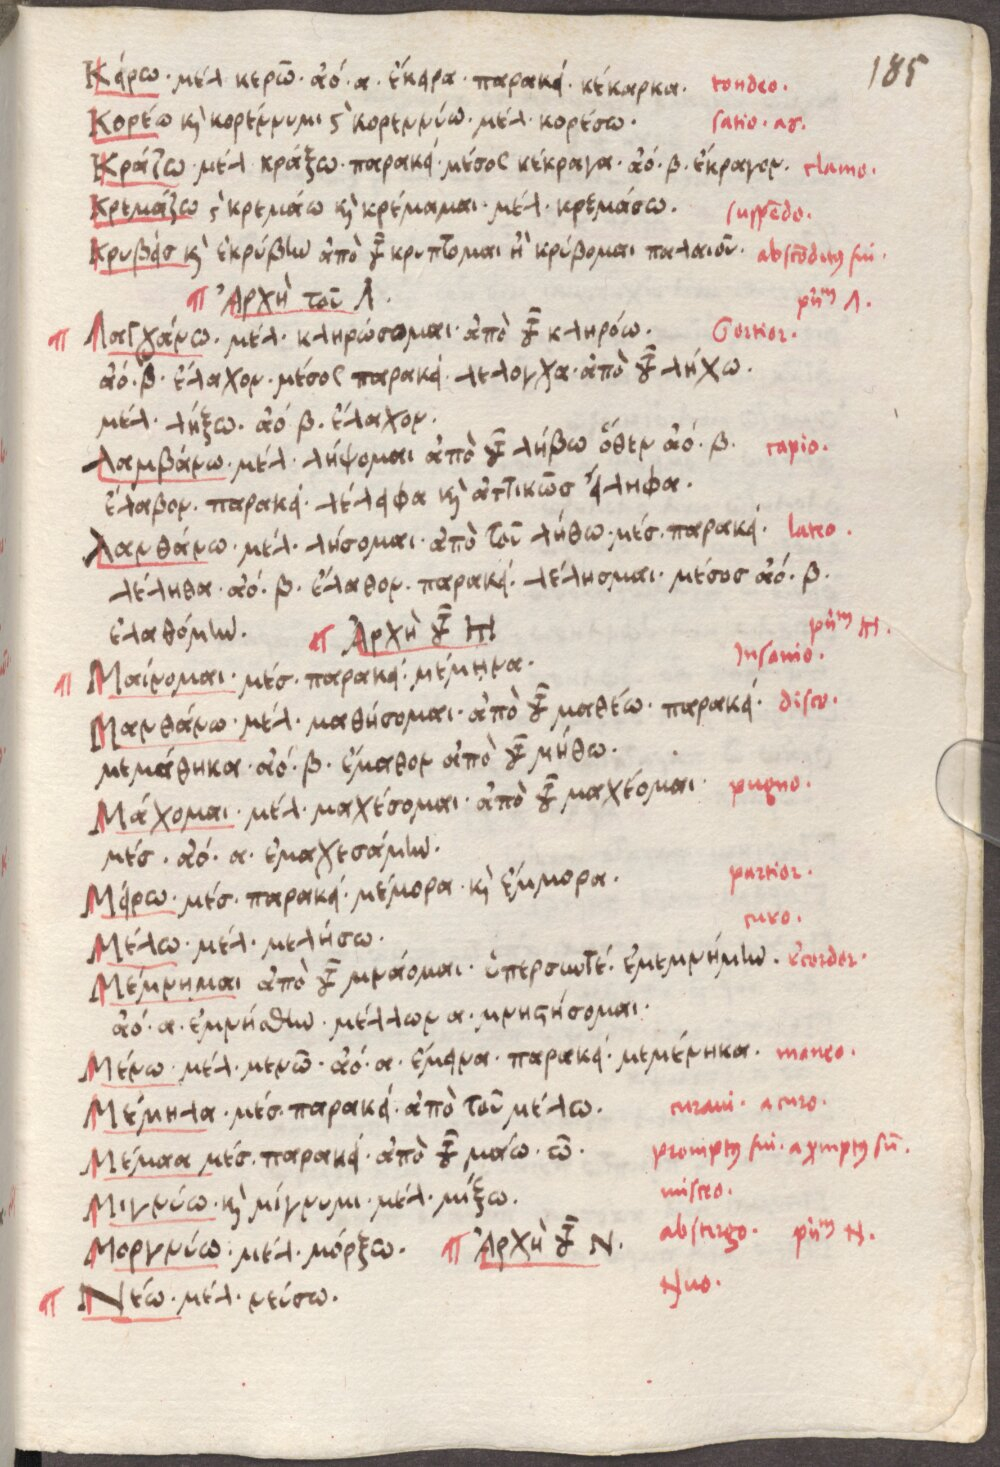 185
Κάρω· μέλ κερῶ· ἀό· α· ἔκαρα· παρακά· κέκαρκα· tondeo·
Κορέω κ̀ κορέννυμι ς̀ κορεννύω· μέλ· κορέσω· satio· as·
Κράζω· μέλ κράξω· παρακά· μέσος κέκραγα· ἀό· β· ἔκραγον· clamo·
Κρεμάζω ς̀ κρεμάω κ̀ κρέμαμαι· μέλ· κρεμάσω· suspēdo·
Κρυβὰσ κ̀ ἐκρύβην ἀπὸ τοῦ κρυπτομαι ἢ κρύβομαι παλαιοῦ· abscōditus fui·
¶ Ἀρχὴ τοῦ Λ· priᵐ Λ·
¶ Λαγχάνω· μέλ· κληρώσομαι· ἀπὸ τοῦ κληρόω· Sortior·
ἀό· β· ἔλαχον· μέσος παρακά· λέλογχα· ἀπὸ τοῦ λήχω·
μέλ· λήξω· ἀό β· ἔλαχον·
Λαμβάνω· μέλ· λήψομαι ἀπὸ τοῦ λήβω ὅθεν ἀό· β· capio·
ἔλαβον· παρακά· λέλαφα κ̀ ἀττικῶσ ἤληφα·
Λανθάνω· μέλ· λήσομαι· ἀπὸ τοῦ λήθω· μέσ· παρακά· lateo·
λέληθα· ἀό· β· ἔλαθον· παρακά· λέλησμαι· μέσοσ ἀό· β·
ἐλαθόμην· ¶ Ἀρχὴ τοῦ Μ priᵐ Μ·
¶ Μαίνομαι· μέσ· παρακά· μέμηνα· Insanio·
Μανθάνω· μέλ· μαθήσομαι· ἀπὸ τοῦ μαθέω· παρακά· disco·
μεμάθηκα· ἀό· β· ἔμαθον ἀπὸ τοῦ μήθω·
Μάχομαι· μέλ· μαχέσομαι· ἀπὸ τοῦ μαχέομαι· pugno·
μέσ· ἀό· α· ἐμαχεσάμην·
Μάρω· μέσ· παρακά· μέμορα· κ̀ ἔμμορα· partior·
Μέλω· μέλ· μελήσω· curo·
Μέμνημαι ἀπὸ τοῦ μνάομαι· ὑπερσυντέ· ἐμεμνήμην· recordor·
ἀό· α· ἐμνήσθην· μέλλων α· μνηςήσομαι·
Μένω· μέλ· μενῶ· ἀό· α· ἔμανα· παρακά· μεμένηκα· maneo·
Μέμηλα· μέσ· παρακά· ἀπὸ τοῦ μέλω· curaui· a curo·
Μέμαα μέσ· παρακά· ἀπὸ τοῦ μάω· ῶ· promptus fui· a promptus sū·
Μιγνύω· κ̀ μίγνυμι· μέλ· μίξω· misceo·
Μοργνύω· μέλ· μόρξω· ¶ Ἀρχὴ τοῦ Ν· abstergo· priᵐ Ν·
¶ Νέω· μέλ· νεύσω· Nuo·